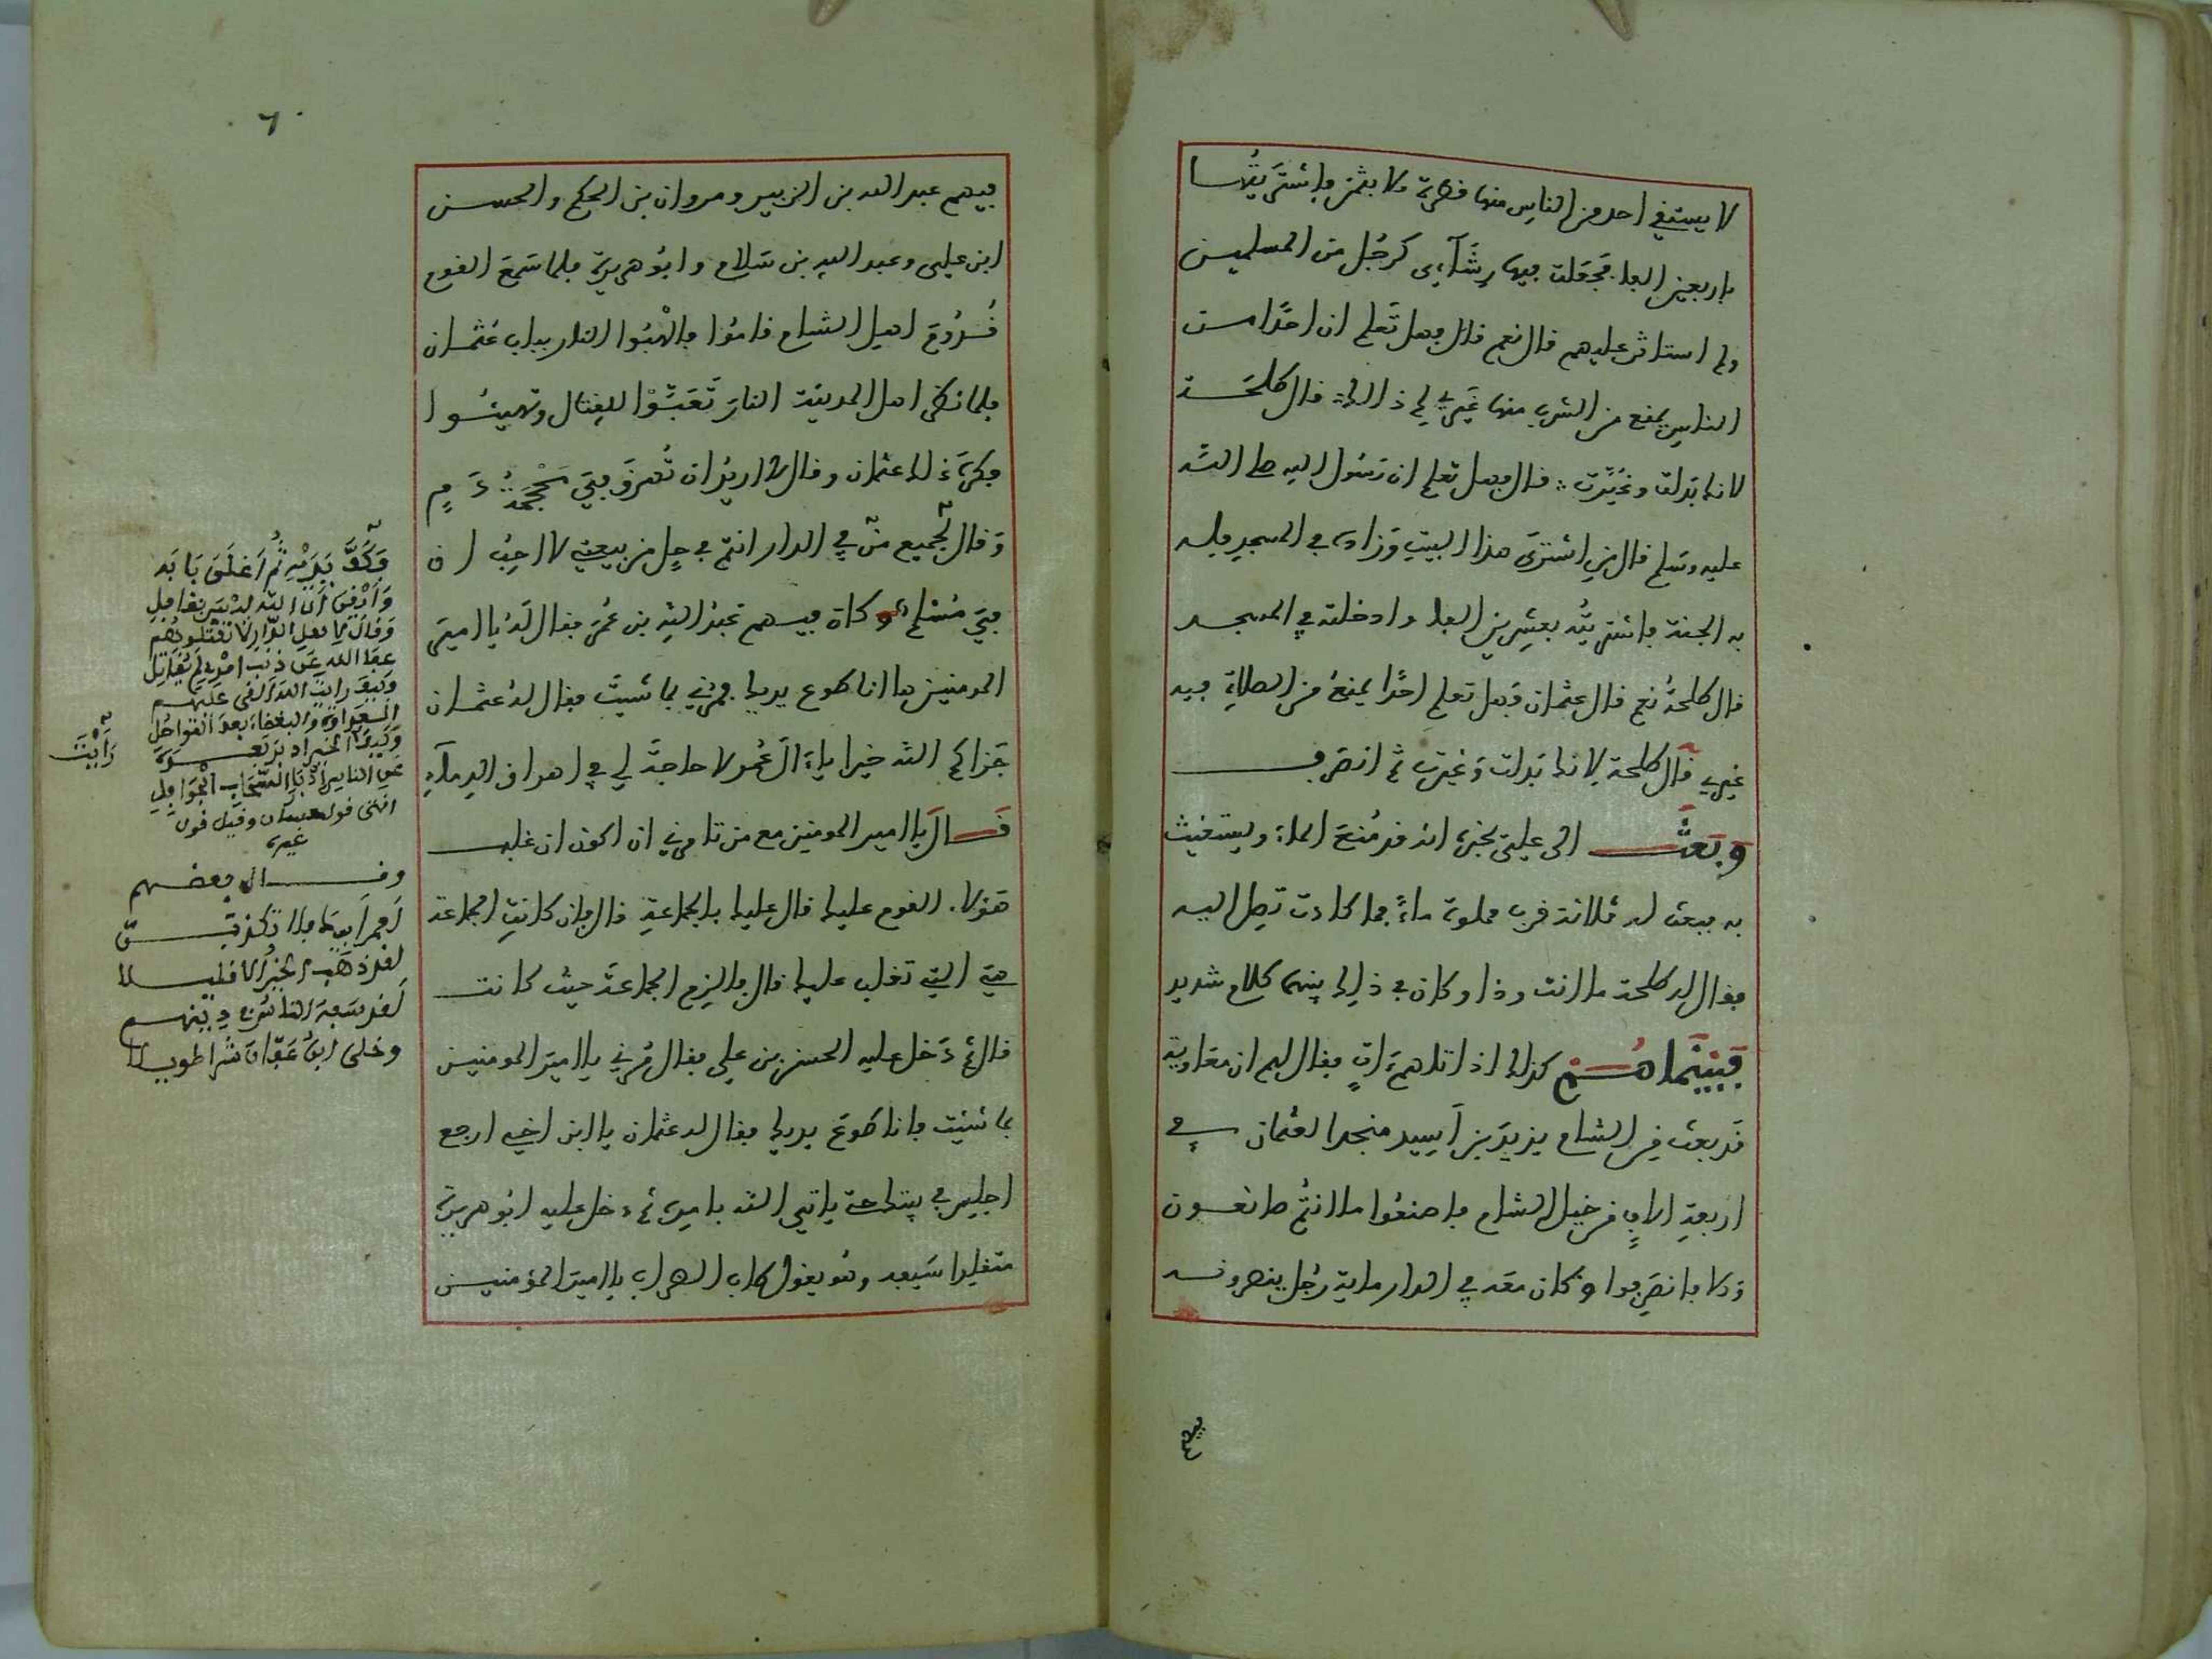 لا يستقي احد من الناس منها قطرة الا بثمن فاشتريتها
باربعين الفا فجعلت فيها رشآءي كرجل من المسلمين
ولم استاثر عليهم قال نعم قال فهل تعلم ان احدا من
الناس يمنع من الشرب منها غيري لم ذالك قال طلحة
لانك بدلت وغيرت قال فهل تعلم ان رسول الله صلى الله
عليه وسلم قال من اشترى هذا البيت وزاده في المسجد فله
به الجنة فاشتريته بعشرين الفا وادخلته في المسجد
قال طلحة نعم قال عثمان فهل تعلم احدا يمنع من الصلاة فيه
غيري قال طلحة لانك بدلت وغيرت ثم انصرف
وبعث الى علي يخبره انه قد منع الماء ويستغيث
به فبعث له ثلاثة قرب مملوة ماء فما كادت تصل اليه
فقال له طلحة ما انت وذا وكان في ذلك بينهما كلام شديد
فبينما هم كذلك اذ اتاهم ات فقال لهم ان معاوية
قد بعث من الشام يزيد بن اسيد منجدا لعثمان في
اربعة الاف من خيل الشام فاصنعوا ما انتم صانعون
والا فانصرفوا وكان معه في الدار ماية رجل ينصرونه
فيهم
٦٠
فيهم عبد الله بن الزبير ومروان بن الحكم والحسن
ابن علي وعبد الله بن سلام وابو هريرة فلما سمع القوم
قدوم اهل الشام قاموا فالهبوا النار بباب عثمان
فلما نظر اهل المدينة النار تعبئوا للقتال وتهيئوا
فكره ذلك عثمان وقال لا اريد ان تهرق في محجمة دم
وقال لجميع من في الدار انتم في حل من بيعتي لا احب ان
في مسلم وكان فيهم عبد الله بن عمر فقال له يا امير
المومنين ها انا طوع يديك فمرني بما شيت فقال له عثمان
جزاكم الله خيرا يا ال عمر لا حاجة لي في اهراق الدمآء
قال يا امير المومنين مع من تامرني ان اكون ان غلب
هولاء القوم عليك قال عليك بالجماعة قال فان كانت الجماعة
هي التي تغلب عليك قال فالزم الجماعة حيث كانت
قال ثم دخل عليه الحسن بن علي فقال مرني يا امير المومنين
بما شئت فانا طوع يديك فقال له عثمان يا ابن اخي ارجع
اجلس في بيتك حتى ياتي الله بامره ثم دخل عليه ابو هريرة
متقلدا سيفه وهو يقول طاب الضراب يا امير المؤمنين
وكف يديه ثم اغلق بابه
وايقن ان الله ليس بغافل
وقال لاهل الدار لا تقتلوهم
عفا الله عن ذنب امرئ لم يقاتل
وكيف رايت الله القى عليهم
العداوة والبغضاء بعد التواصل
وكيف رأيت الخير ادبر بعده
عن الناس ادبار السحاب الجوافل
انتهى قول حسان وقيل قول
غيره
وقال بعضهم
لعمر ابيك فلا تكذبن
لقد ذهب الخير الا قليلا
لقد سفه الناس في دينهم
وخلى ابن عفان شرا طويلا